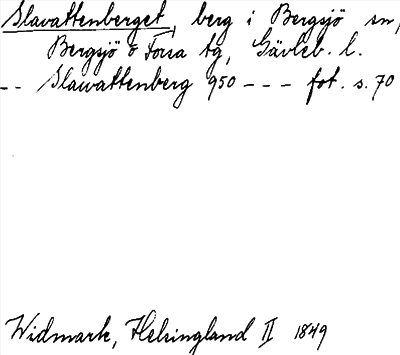 Slavattenberget, berg i Bergsjö sn,
Bergsjö o Forsa tg, Gävleb. l.
-- Slawattenberg 950 --- fot. s. 70
Widmark, Helsingland II 1849